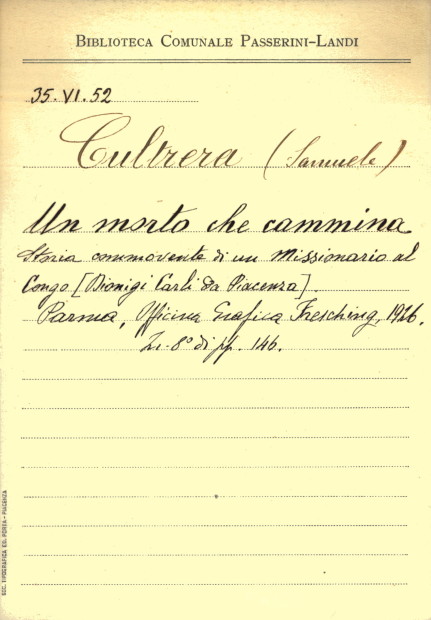 BIBLIOTECA COMUNALE PASSERINI-LANDI
35.VI.52
Cultrera (Samuele)
Un morto che cammina
Storia commovente di un Missionario al
Congo [Dionigi Carli da Piacenza].
Parma, Officina Grafica Fresching, 1926.
In-8° di pp. 146.
SOC. TIPOGRAFICA ED. PORTA - PIACENZA